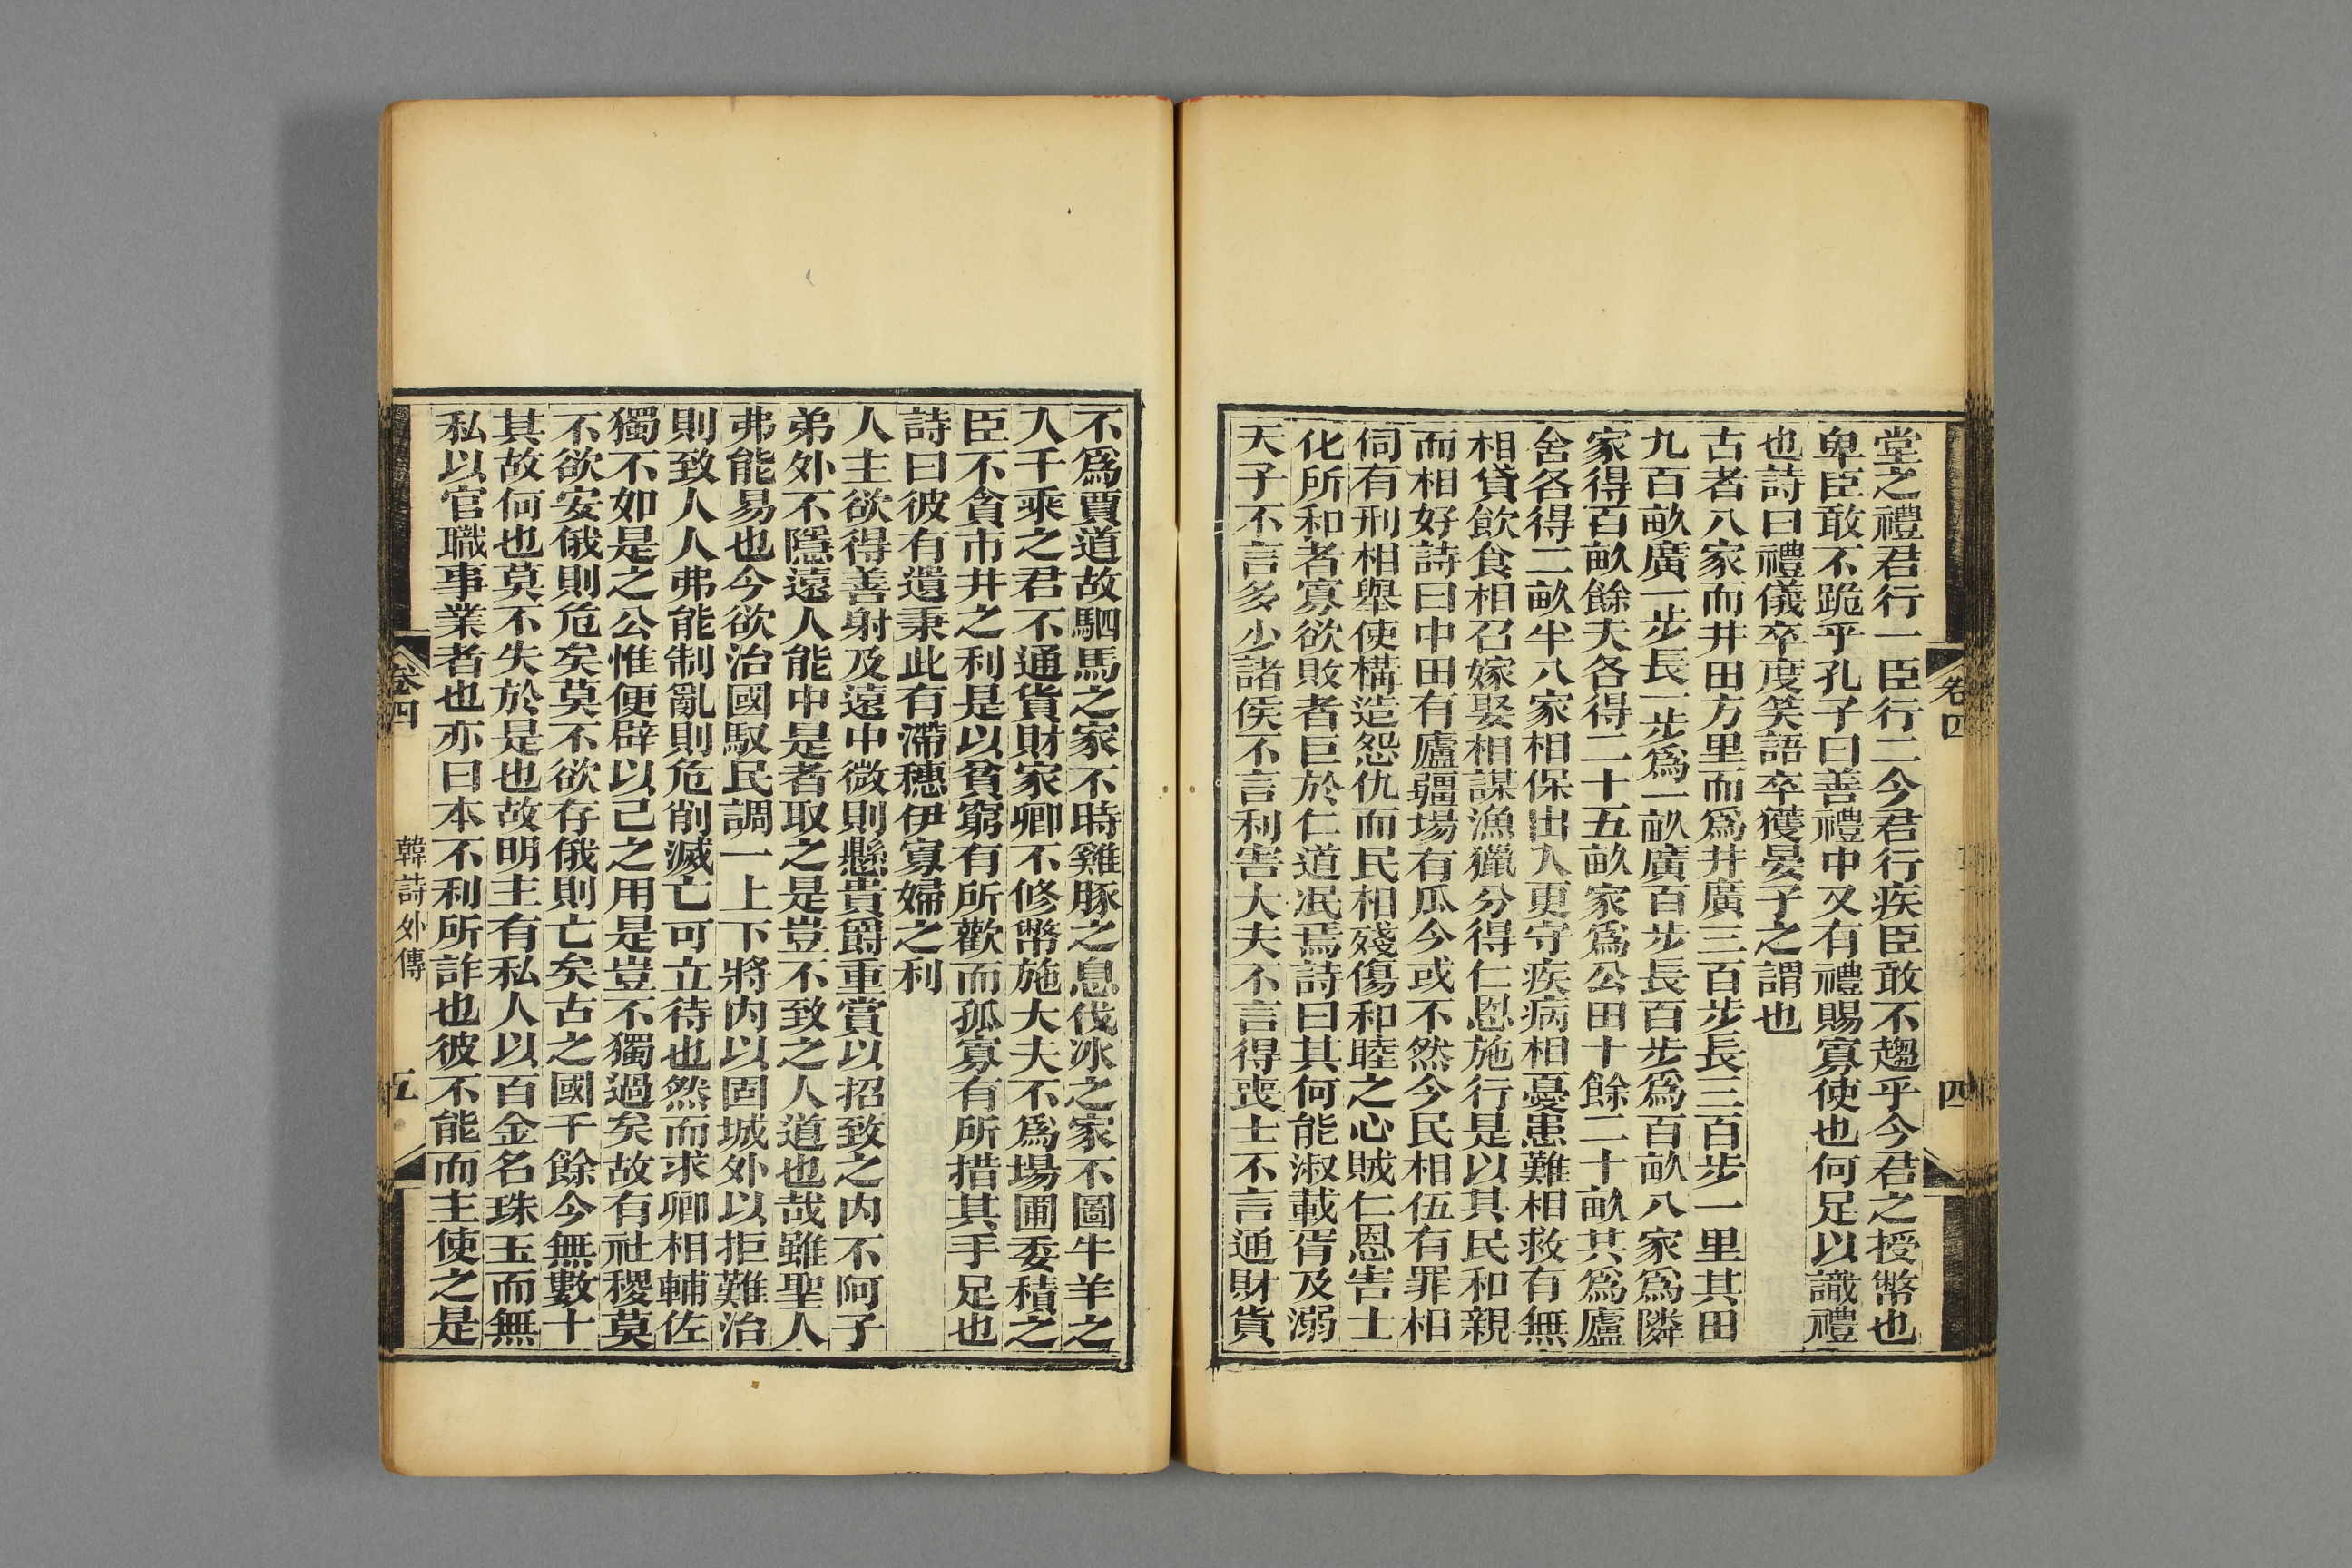 堂之禮君行一臣行二今君行疾臣敢不趨乎今君之授幣也
卑臣敢不跪乎孔子曰善禮中又有禮賜寡使也何足以識禮
也詩曰禮儀卒度笑語卒獲晏子之謂也
古者八家而井田方里而爲井廣三百步長三百步一里其田
九百畝廣一步長一步爲一畝廣百步長百步爲百畝八家爲隣
家得百畝餘夫各得二十五畝家爲公田十餘二十畝共爲廬
舍各得二畝半八家相保出入更守疾病相憂患難相救有無
相貸飲食相召嫁娶相謀漁獵分得仁恩施行是以其民和親
而相好詩曰中田有廬疆場有瓜今或不然今民相伍有罪相
伺有刑相舉使構造怨仇而民相殘傷和睦之心賊仁恩害士
化所和者寡欲敗者巨於仁道泯焉詩曰其何能淑載胥及溺
天子不言多少諸侯不言利害大夫不言得喪士不言通財貨
卷四
四
不爲賈道故駟馬之家不時雞豚之息伐冰之家不圖牛羊之
入千乘之君不通貨財家卿不修幣施大夫不爲場圃委積之
臣不貪市井之利是以貧窮有所歡而孤寡有所措其手足也
詩曰彼有遺秉此有滯穗伊寡婦之利
人主欲得善射及遠中微則懸貴爵重賞以招致之内不阿子
弟外不隱遠人能中是者取之是豈不致之人道也哉雖聖人
弗能易也今欲治國馭民調一上下將内以固城外以拒難治
則致人人弗能制亂則危削滅亡可立待也然而求卿相輔佐
獨不如是之公惟便辟以己之用是豈不獨過矣故有社稷莫
不欲安俄則危矣莫不欲存俄則亡矣古之國千餘今無數十
其故何也莫不失於是也故明主有私人以百金名珠玉而無
私以官職事業者也亦曰本不利所詐也彼不能而主使之是
卷四
韓詩外傳
五